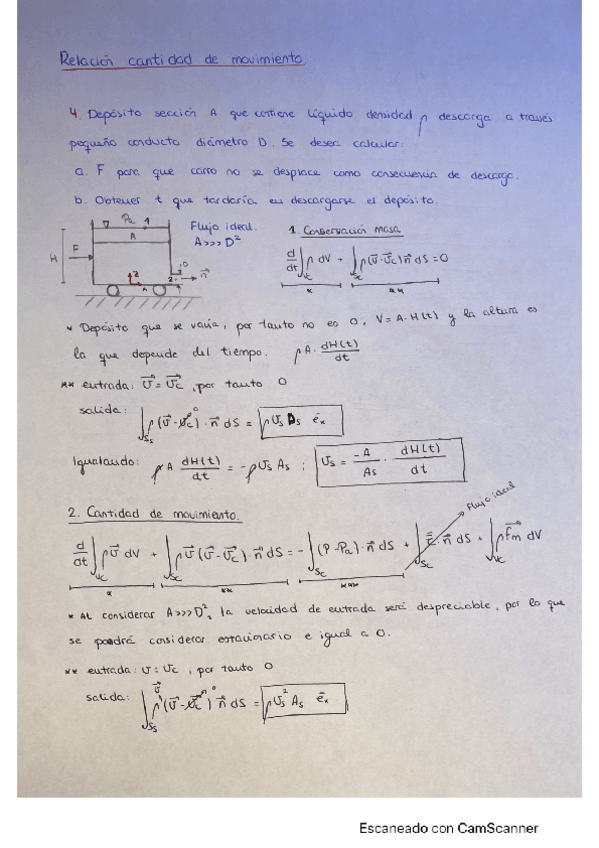 Relación cantidad de movimiento.
4. Depósito sección A que contiene líquido densidad ρ descarga a través
pequeño conducto diámetro D. Se desea calcular:
a. F para que carro no se desplace como consecuencia de descarga.
b. Obtener t que tardaría en descargarse el depósito.
Pa 1
A
H
F
2
D
n⃗
Flujo ideal.
A>>> D²
1. Conservación masa
d/dt ∫_Vc ρ dV + ∫_Sc ρ(v⃗-v⃗c) n⃗ dS = 0
* **
* Depósito que se varía, por tanto no es 0. V = A·H(t) y la altura es
la que depende del tiempo. ρA· dH(t)/dt
** entrada: v⃗ = v⃗c, por tanto 0
salida: ∫_Ss ρ(v⃗-v⃗c)·n⃗ dS = ρ vs As e⃗x
Igualando: ρA dH(t)/dt = -ρ vs As ; vs = -A/As · dH(t)/dt
2. Cantidad de movimiento.
Flujo ideal
d/dt ∫_Vc ρv⃗ dV + ∫_Sc ρv⃗(v⃗-v⃗c)·n⃗ dS = -∫_Sc (P-Pa)·n⃗ dS + ∫_Sc τ·n⃗ dS + ∫_Vc ρf⃗m dV
* ** ***
* AL considerar A>>>D², la velocidad de entrada será despreciable, por lo que
se podrá considerar estacionario e igual a 0.
** entrada: v = vc, por tanto 0
salida: ∫_Ss ρv⃗(v⃗-v⃗c)n⃗ dS = ρ vs² As e⃗x
Escaneado con CamScanner